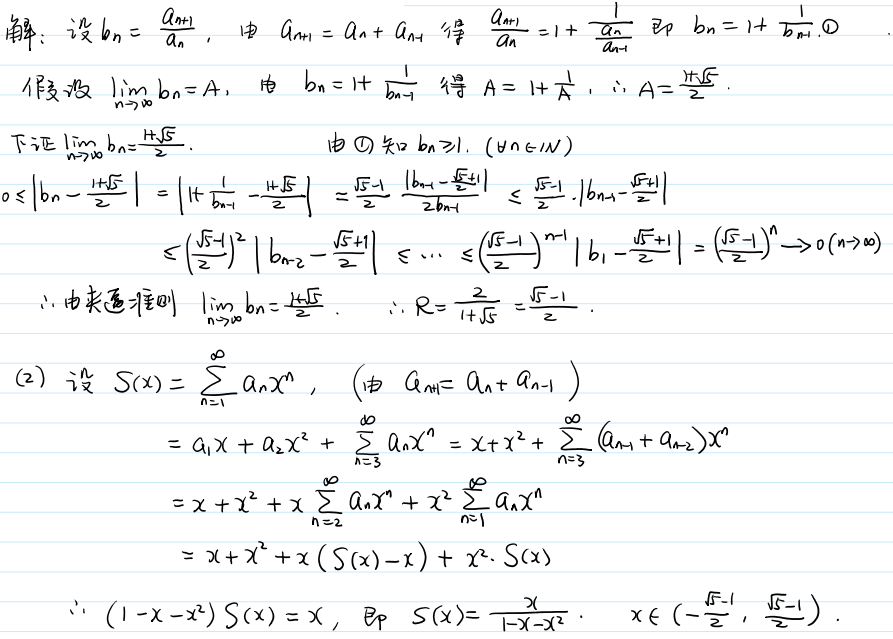 解: 设 bₙ = aₙ₊₁/aₙ, 由 aₙ₊₁ = aₙ + aₙ₋₁ 得 aₙ₊₁/aₙ = 1 + 1/(aₙ/aₙ₋₁) 即 bₙ = 1 + 1/bₙ₋₁.①
假设 lim_{n→∞} bₙ = A, 由 bₙ = 1 + 1/bₙ₋₁ 得 A = 1 + 1/A, ∴ A = (1+√5)/2.
下证 lim_{n→∞} bₙ = (1+√5)/2. 由①知 bₙ ≥ 1. (∀n∈IN)
0 ≤ |bₙ - (1+√5)/2| = |1 + 1/bₙ₋₁ - (1+√5)/2| = (√5-1)/2 · |bₙ₋₁ - (√5+1)/2|/(2bₙ₋₁) ≤ (√5-1)/2 · |bₙ₋₁ - (√5+1)/2|
≤ ((√5-1)/2)² |bₙ₋₂ - (√5+1)/2| ≤ ⋯ ≤ ((√5-1)/2)ⁿ⁻¹ |b₁ - (√5+1)/2| = ((√5-1)/2)ⁿ → 0 (n→∞)
∴ 由夹逼准则 lim_{n→∞} bₙ = (1+√5)/2. ∴ R = 2/(1+√5) = (√5-1)/2.
(2) 设 S(x) = ∑_{n=1}^{∞} aₙxⁿ, (由 aₙ₊₁ = aₙ + aₙ₋₁)
= a₁x + a₂x² + ∑_{n=3}^{∞} aₙxⁿ = x + x² + ∑_{n=3}^{∞} (aₙ₋₁ + aₙ₋₂)xⁿ
= x + x² + x ∑_{n=2}^{∞} aₙxⁿ + x² ∑_{n=1}^{∞} aₙxⁿ
= x + x² + x(S(x) - x) + x²·S(x)
∴ (1-x-x²)S(x) = x, 即 S(x) = x/(1-x-x²). x∈(-(√5-1)/2, (√5-1)/2).